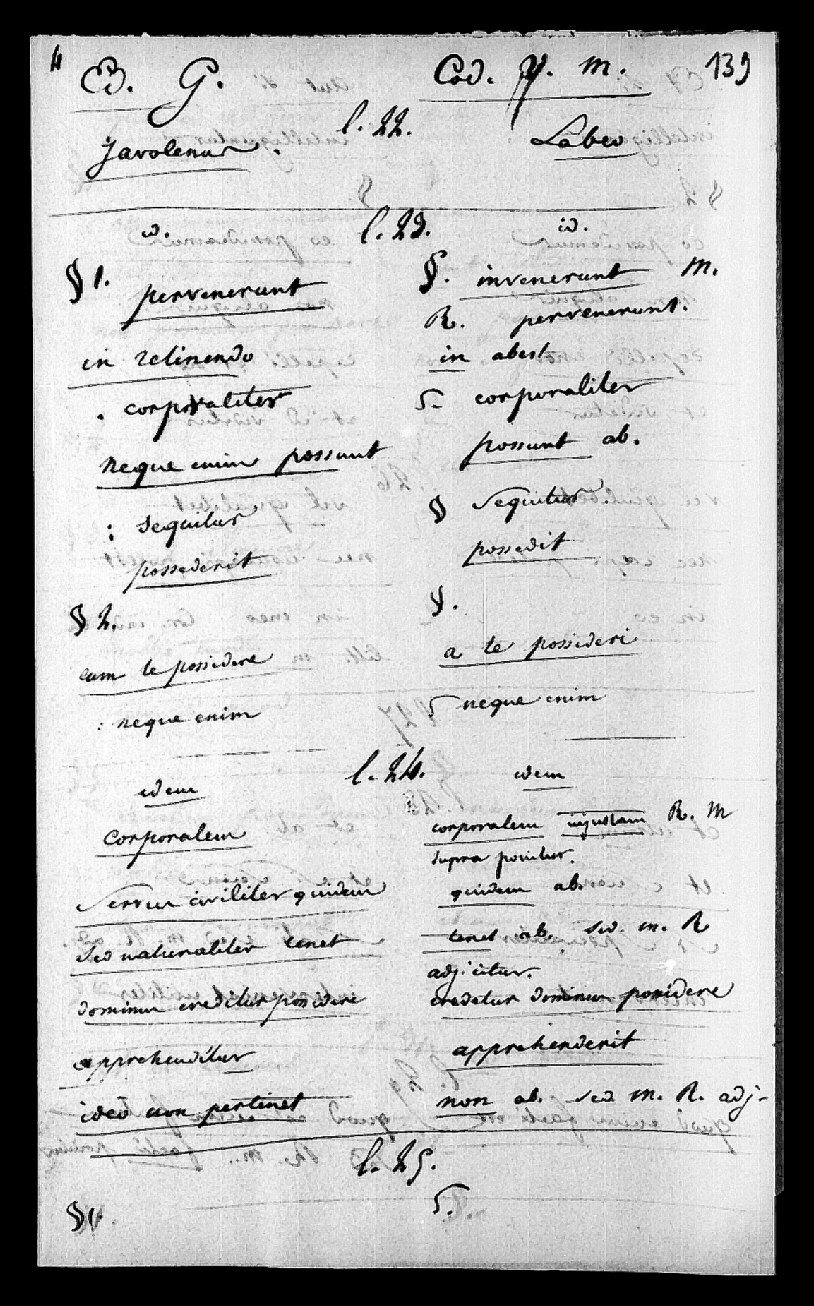 Ed. G. Cod. P. m. 139
l. 22.
Javolenus. Labeo
l. 23.
id. id.
§ 1. pervenerunt §. invenerunt m.
R. pervenerunt.
in retinendo in abest
. corporaliter 5- corporaliter
neque enim possunt possunt ab.
: sequitur § sequitur
possederit possedit
§ 2. §.
eum te possidere a te possideri
: neque enim 5 neque enim
l. 24.
idem idem
corporalem corporalem injustam R. M
supra ponitur.
servus civiliter quidem quidem ab.
sed naturaliter tenet tenet ab. sed. m. R
adjicitur.
dominus creditur possidere credetur dominus possidere
apprehenditur apprehenderit
ideo non pertinet non ab. sed m. R. adj-
l. 25.
§ 1. 5.